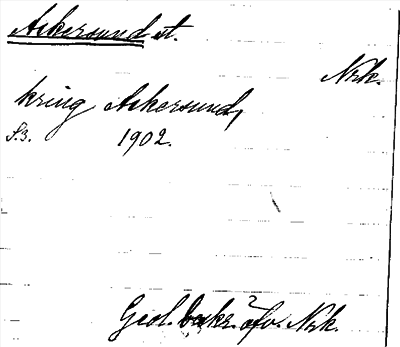 Askersund st.
Nrk.
kring Askersund,
S.3. 1902.
Geol. beskr. öfv. Nrk.